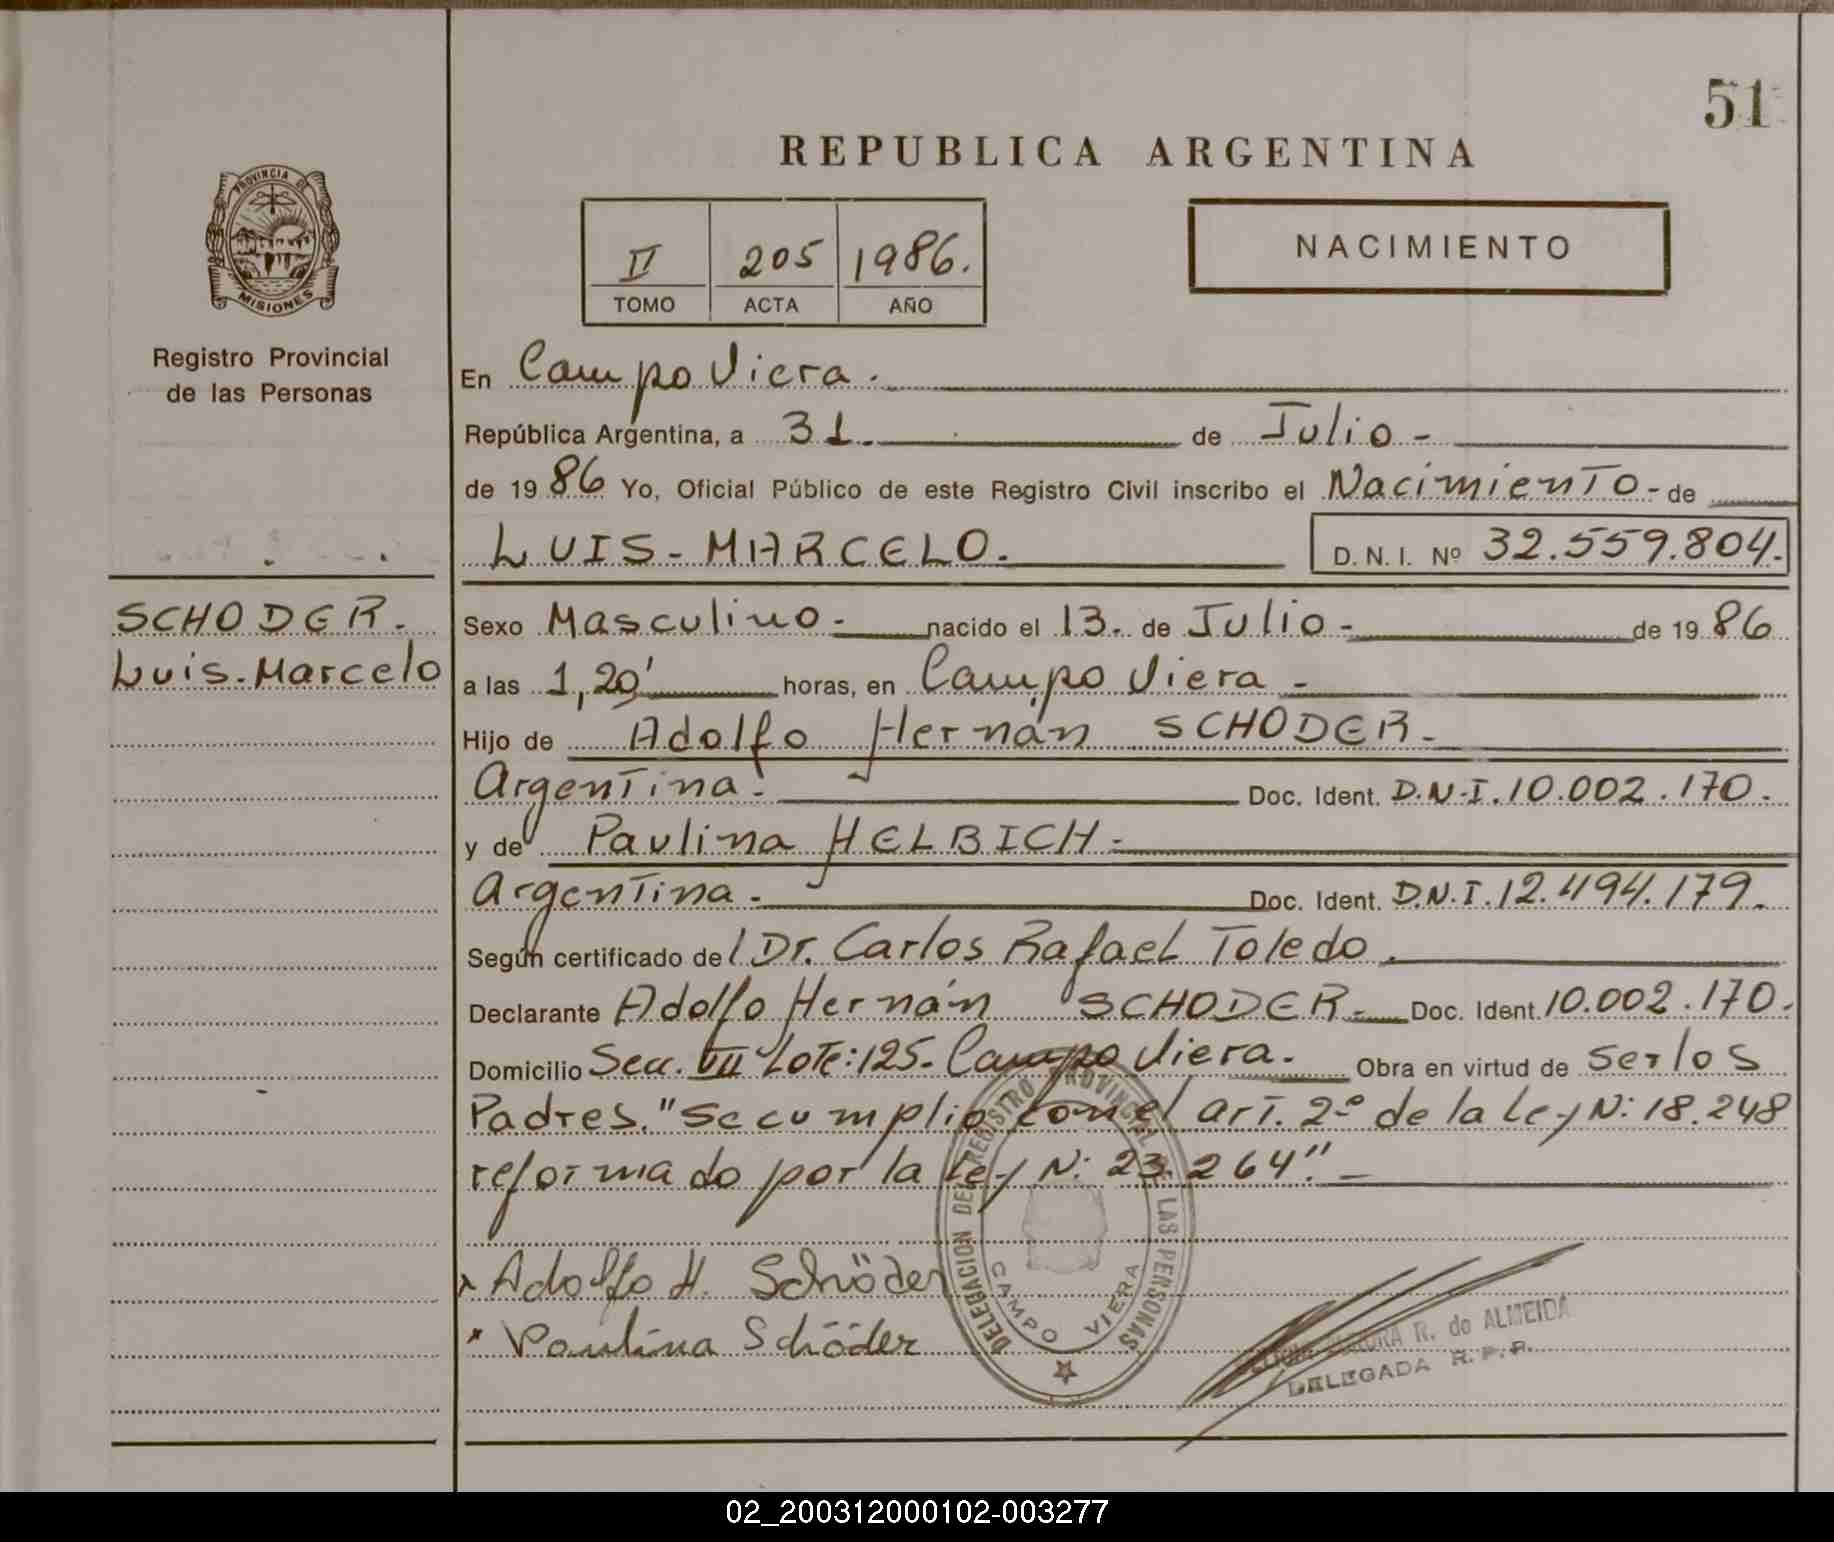 51
REPUBLICA ARGENTINA
PROVINCIA DE
MISIONES
Registro Provincial
de las Personas
II 205 1986.
TOMO ACTA AÑO
NACIMIENTO
En Campo Viera.
República Argentina, a 31. de Julio -
de 19 86 Yo, Oficial Público de este Registro Civil inscribo el Nacimiento - de
LUIS - MARCELO. D.N.I. Nº 32.559.804.
SCHODER.
Luis - Marcelo
Sexo Masculino - nacido el 13. de Julio - de 19 86
a las 1,20' horas, en Campo Viera -
Hijo de Adolfo Hernán SCHODER -
Argentina. Doc. Ident. D.N.I. 10.002.170.
y de Paulina HELBICH -
Argentina - Doc. Ident. D.N.I. 12.494.179.
Según certificado de Dr. Carlos Rafael Toledo.
Declarante Adolfo Hernán SCHODER - Doc. Ident 10.002.170.
Domicilio Secc. VII Lote: 125 - Campo Viera - Obra en virtud de ser los
Padres. "Se cumplió con el art. 2º de la Ley N: 18.248
reformado por la Ley N: 23.264". -
Adolfo H. Schöder
Paulina Schöder
DELEGACION DEL REGISTRO PROVINCIAL DE LAS PERSONAS
CAMPO VIERA
R. de ALMEIDA
DELEGADA R. P. P.
02_200312000102-003277